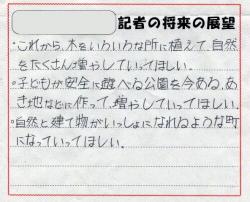 記者の将来の展望
・これから、木をいろいろな所に植えて、自然
をたくさん増やしていってほしい。
・子どもが安全に遊べる公園を今ある、あ
き地などに作って、増やしていってほしい。
・自然と建て物がいっしょになれるような町
になっていってほしい。